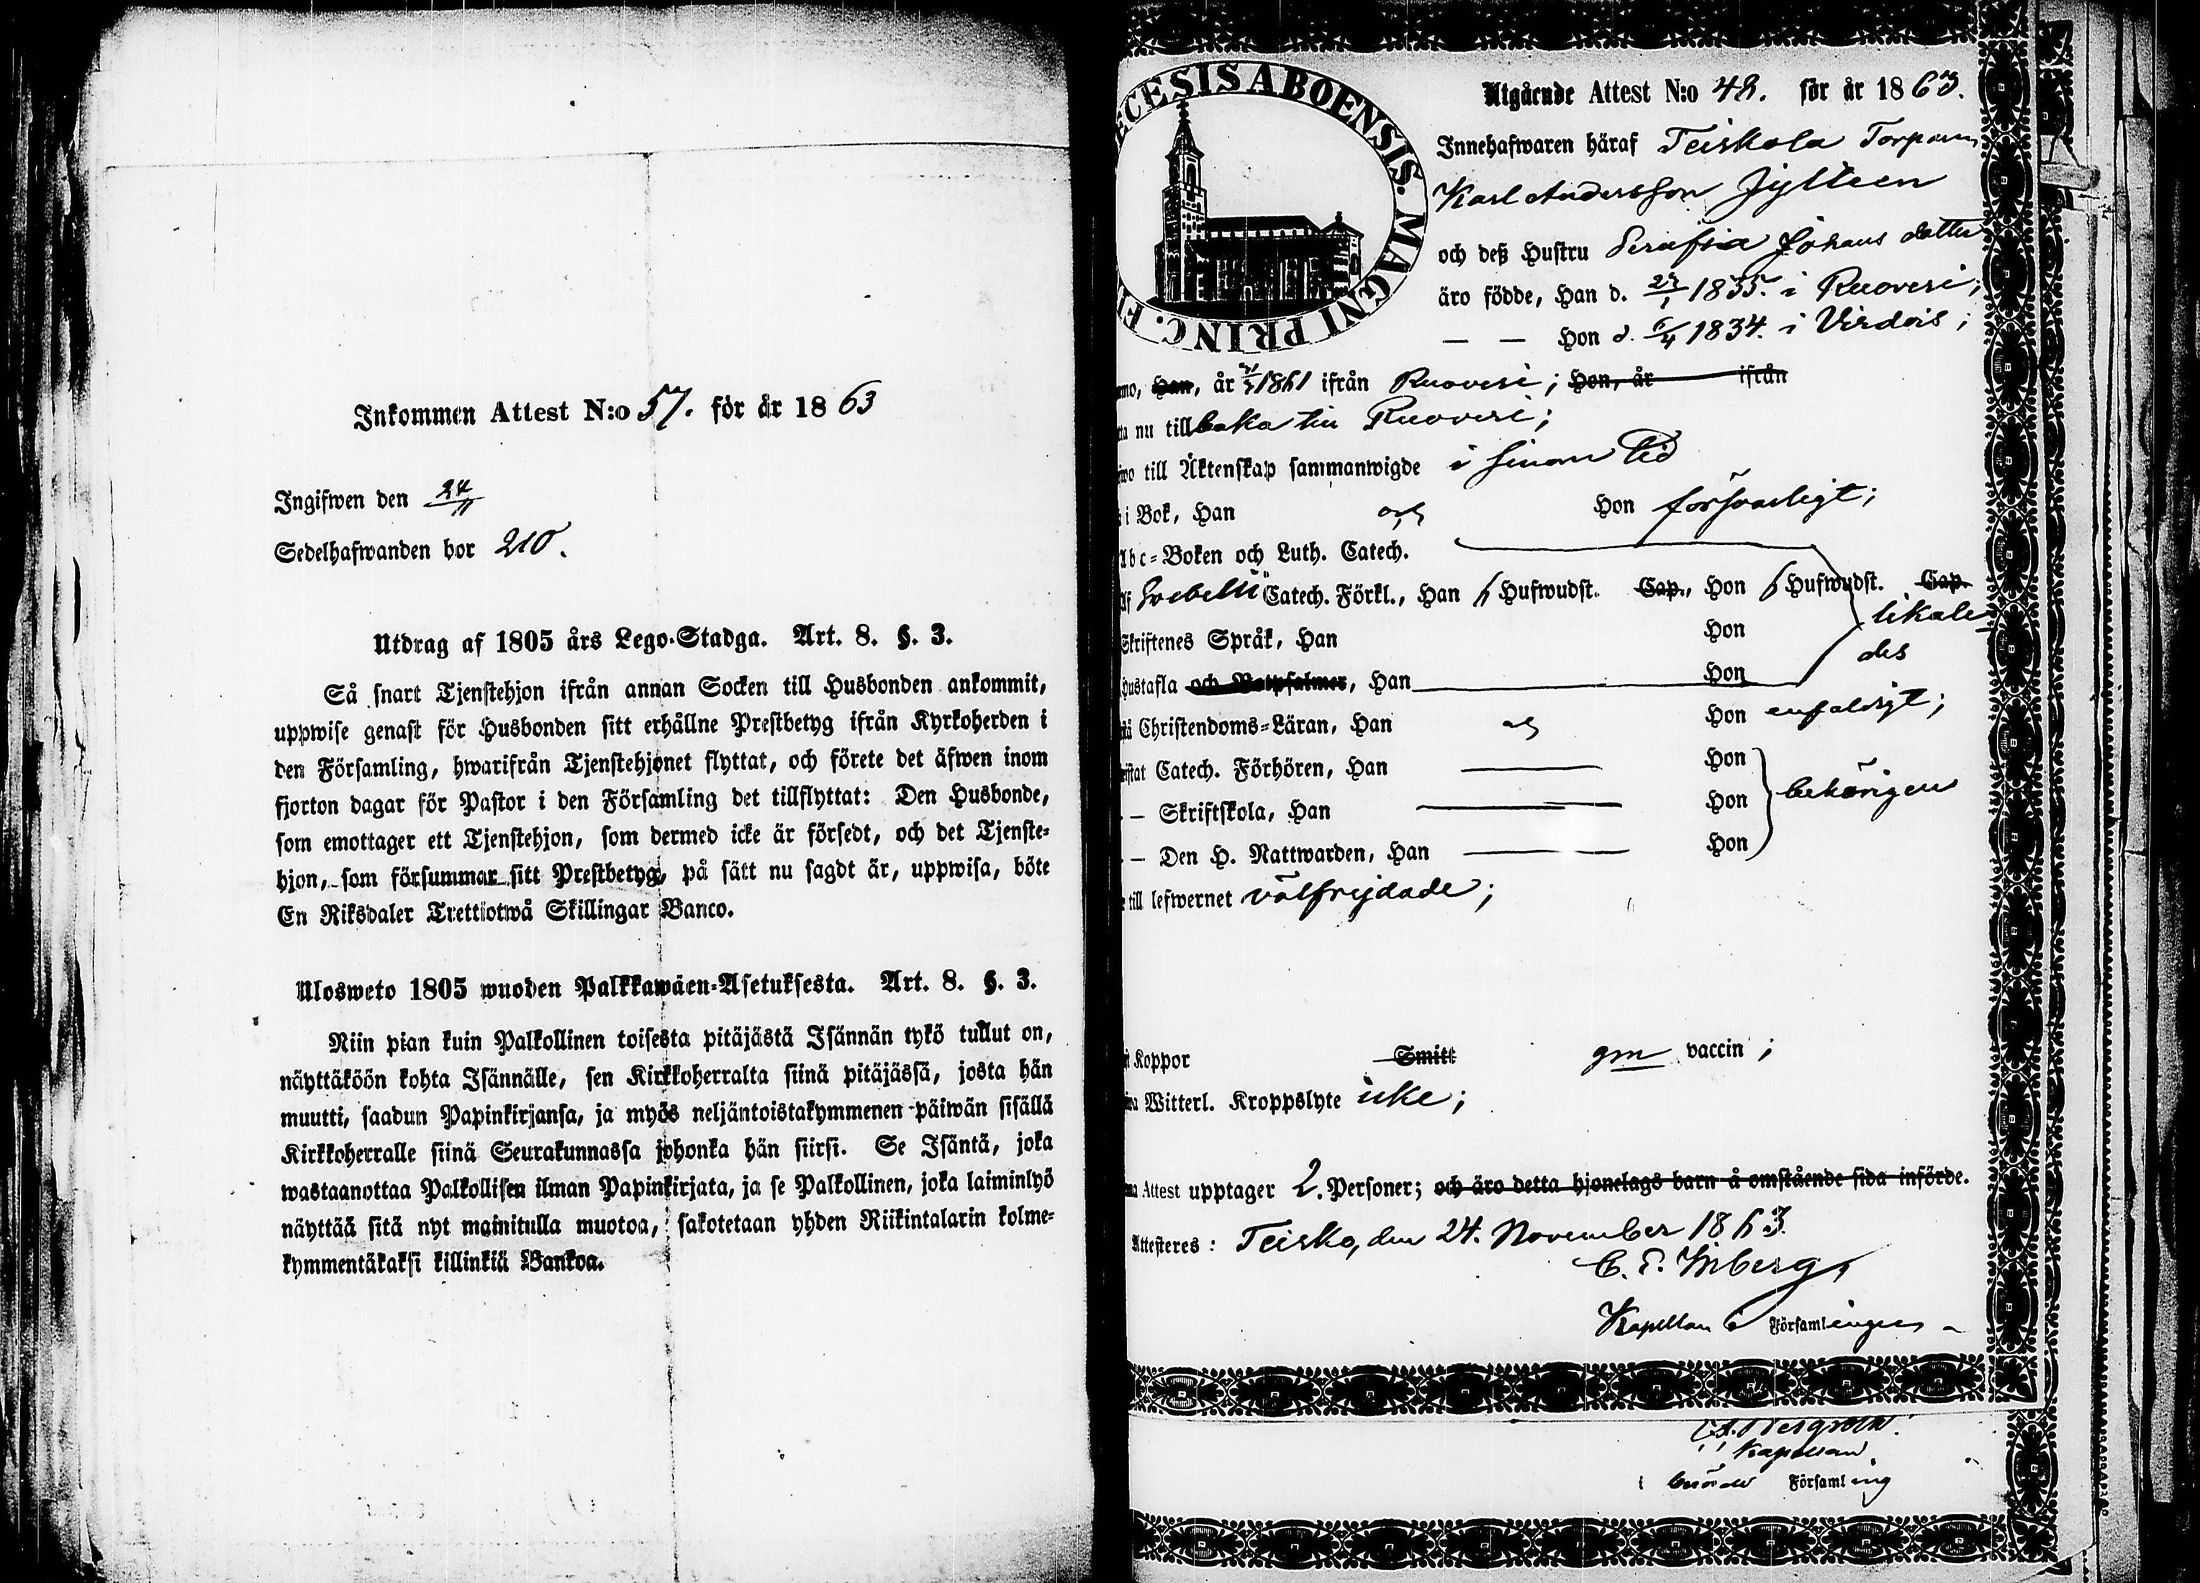 Inkommen Attest N:o 57. för år 1863
Ingifwen den 24/11
Sedelhafwanden bor 210.
Utdrag af 1805 års Lego-Stadga. Art. 8. §. 3.
Så snart Tjenstehjon ifrån annan Socken till Husbonden ankommit,
uppwise genast för Husbonden sitt erhållne Prestbetyg ifrån Kyrkoherden i
den Församling, hwarifrån Tjenstehjonet flyttat, och förete det äfwen inom
fjorton dagar för Pastor i den Församling det tillflyttat: Den Husbonde,
som emottager ett Tjenstehjon, som dermed icke är försedt, och det Tjenste-
hjon, som försummar sitt Prestbetyg, på sätt nu sagdt är, uppwisa, böte
En Riksdaler Trettiotwå Skillingar Banco.
Ulosweto 1805 wuoden Palkkawäen-Asetuksesta. Art. 8. §. 3.
Niin pian kuin Palkollinen toisesta pitäjästä Isännän tykö tullut on,
näyttäköön kohta Isännälle, sen Kirkkoherralta siinä pitäjässä, josta hän
muutti, saadun Papinkirjansa, ja myös neljäntoistakymmenen päiwän sisällä
Kirkkoherralle siinä Seurakunnassa johonka hän siirsi. Se Isäntä, joka
wastaanottaa Palkollisen ilman Papinkirjata, ja se Palkollinen, joka laiminlyö
näyttää sitä nyt mainitulla muotoa, sakotetaan yhden Riikintalarin kolme-
kymmentäkaksi killinkiä Bankoa.
ECESIS ABOENSIS. MAGNI PRINC. FI
Utgående Attest N:o 48. för år 1863.
Innehafwaren häraf Teiskola Torparen
Karl Andersson Jylleen
och deß Hustru Serafia Johans dotter
äro födde, Han d. 1835. i Ruovesi;
— — Hon d. 6/4 1834. i Virdois;
Han, år 1861 ifrån Ruovesi; Hon, år ifrån
nu tillbaka till Ruovesi;
till Äktenskap sammanwigde i sinom tid
i Bok, Han och Hon försvarligt;
Abc-Boken och Luth. Catech.
Af Svebelii Catech. Förkl., Han 6 Hufwudst. Cap., Hon 6 Hufwudst. Cap.
likale
Skriftenes Språk, Han Hon
des
Hustafla och Botpsalmer, Han Hon
Christendoms-Läran, Han och Hon enfaldigt;
Catech. Förhören, Han Hon
— Skriftskola, Han Hon behörigen
— Den H. Nattwarden, Han Hon
till lefwernet välfrejdade;
Koppor Smitt gm vaccin;
Witterl. Kroppslyte icke;
Attest upptager 2. Personer; och äro detta hjonelags barn å omstående sida införde.
Attesteres: Teisko, den 24. November 1863.
Kapellan i Församlingen
Kapellan
i Församling